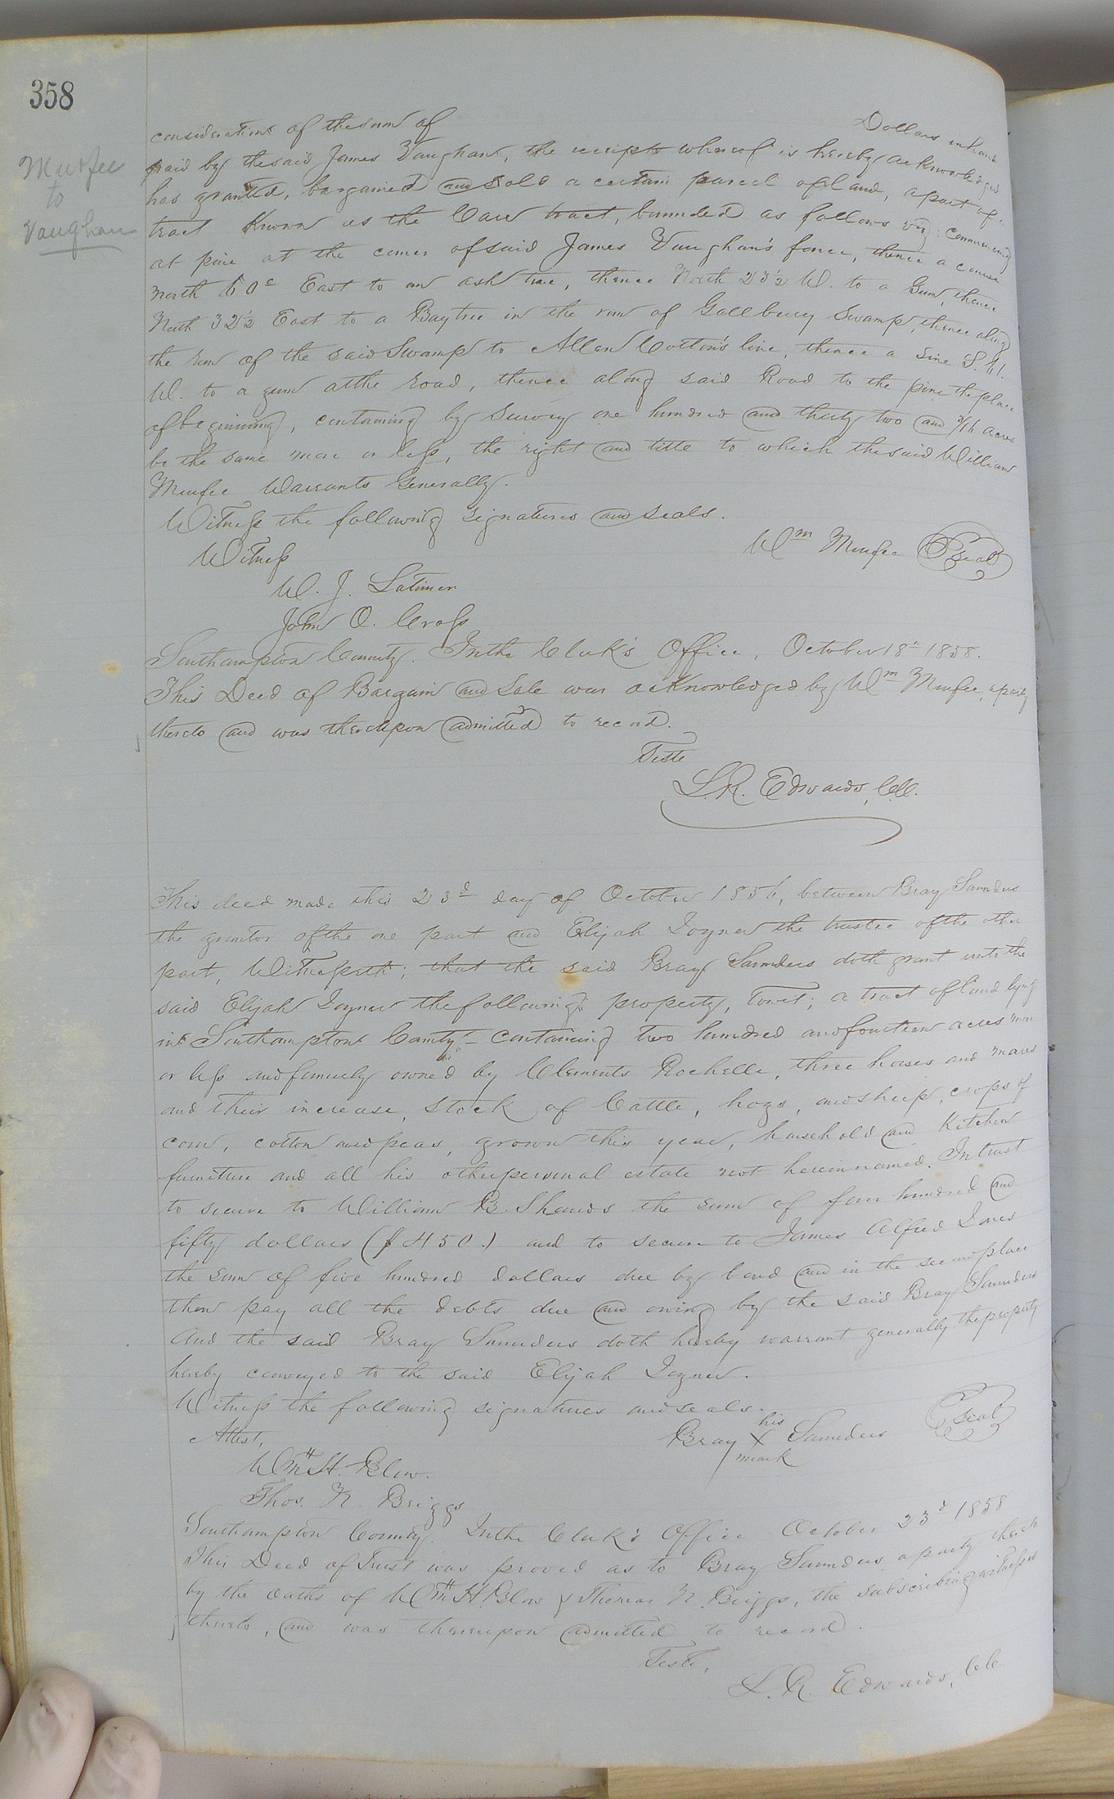 358
Murfee
to
Vaughan
consideration of the sum of Dollars in hand
paid by the said James Vaughan, the receipt whereof is hereby acknowledged
has granted, bargained and sold a certain parcel of land, a part of a
tract Known as the tract, bounded as follows viz: commencing
at pine at the corner of said James Vaughan's fence, thence a course
North 60° East to an ash tree, thence North 23½ W. to a Gum, thence
North 32½ East to a Baytree in the run of Gallbury Swamp, thence along
the run of the said Swamp to Allen Cotton's line, thence a line S. 41.
W. to a gum at the road, thence along said Road to the pine the place
of beginning, containing by Survey one hundred and thirty two and /16 acres
be the same more or less, the right and title to which the said William
Murfee Warrants Generally.
Witness the following signatures and seals.
Witness Wm Murfee Seal
W. J. Latimer
John O. Cross
Southampton County. In the Clerk's Office, October 18" 1858.
This Deed of Bargain and Sale was acknowledged by Wm Murfee, a party
thereto and was thereupon admitted to record.
Teste
L. R. Edwards, C.C.
This deed made this 23d day of October 1856, between Bray Saunders
the grantor of the one part and Elijah Joyner the trustee of the other
part, Witnesseth; that the said Bray Saunders doth grant unto the
said Elijah Joyner the following property, towit; a tract of land lying
in Southampton County - containing two hundred and fourteen acres more
or less and formerly owned by Clements Rochelle, three horses and mares
and their increase, stock of Cattle, hogs, and sheep, crops of
corn, cotton and peas, grown this year, household and Kitchen
furniture and all his other personal estate not herein named. In trust
to secure to William B. Shands the sum of four hundred and
fifty dollars ($450.) and to secure to James Alfred Jones
the sum of five hundred dollars due by bond and in the second place
then pay all the debts due and owing by the said Bray Saunders
And the said Bray Saunders doth hereby warrant generally the property
hereby conveyed to the said Elijah Joyner.
Witness the following signatures and seals.
Attest, Bray his X mark Saunders Seal
Wm H. Blow.
Thos. N. Briggs
Southampton County. In the Clerk's Office October 23d 1858
This Deed of Trust was proved as to Bray Saunders, a party thereto
by the oaths of Wm H. Blow & Thomas N. Briggs, the subscribing witnesses
thereto, and was thereupon admitted to record.
Teste,
L. R. Edwards, C.C.